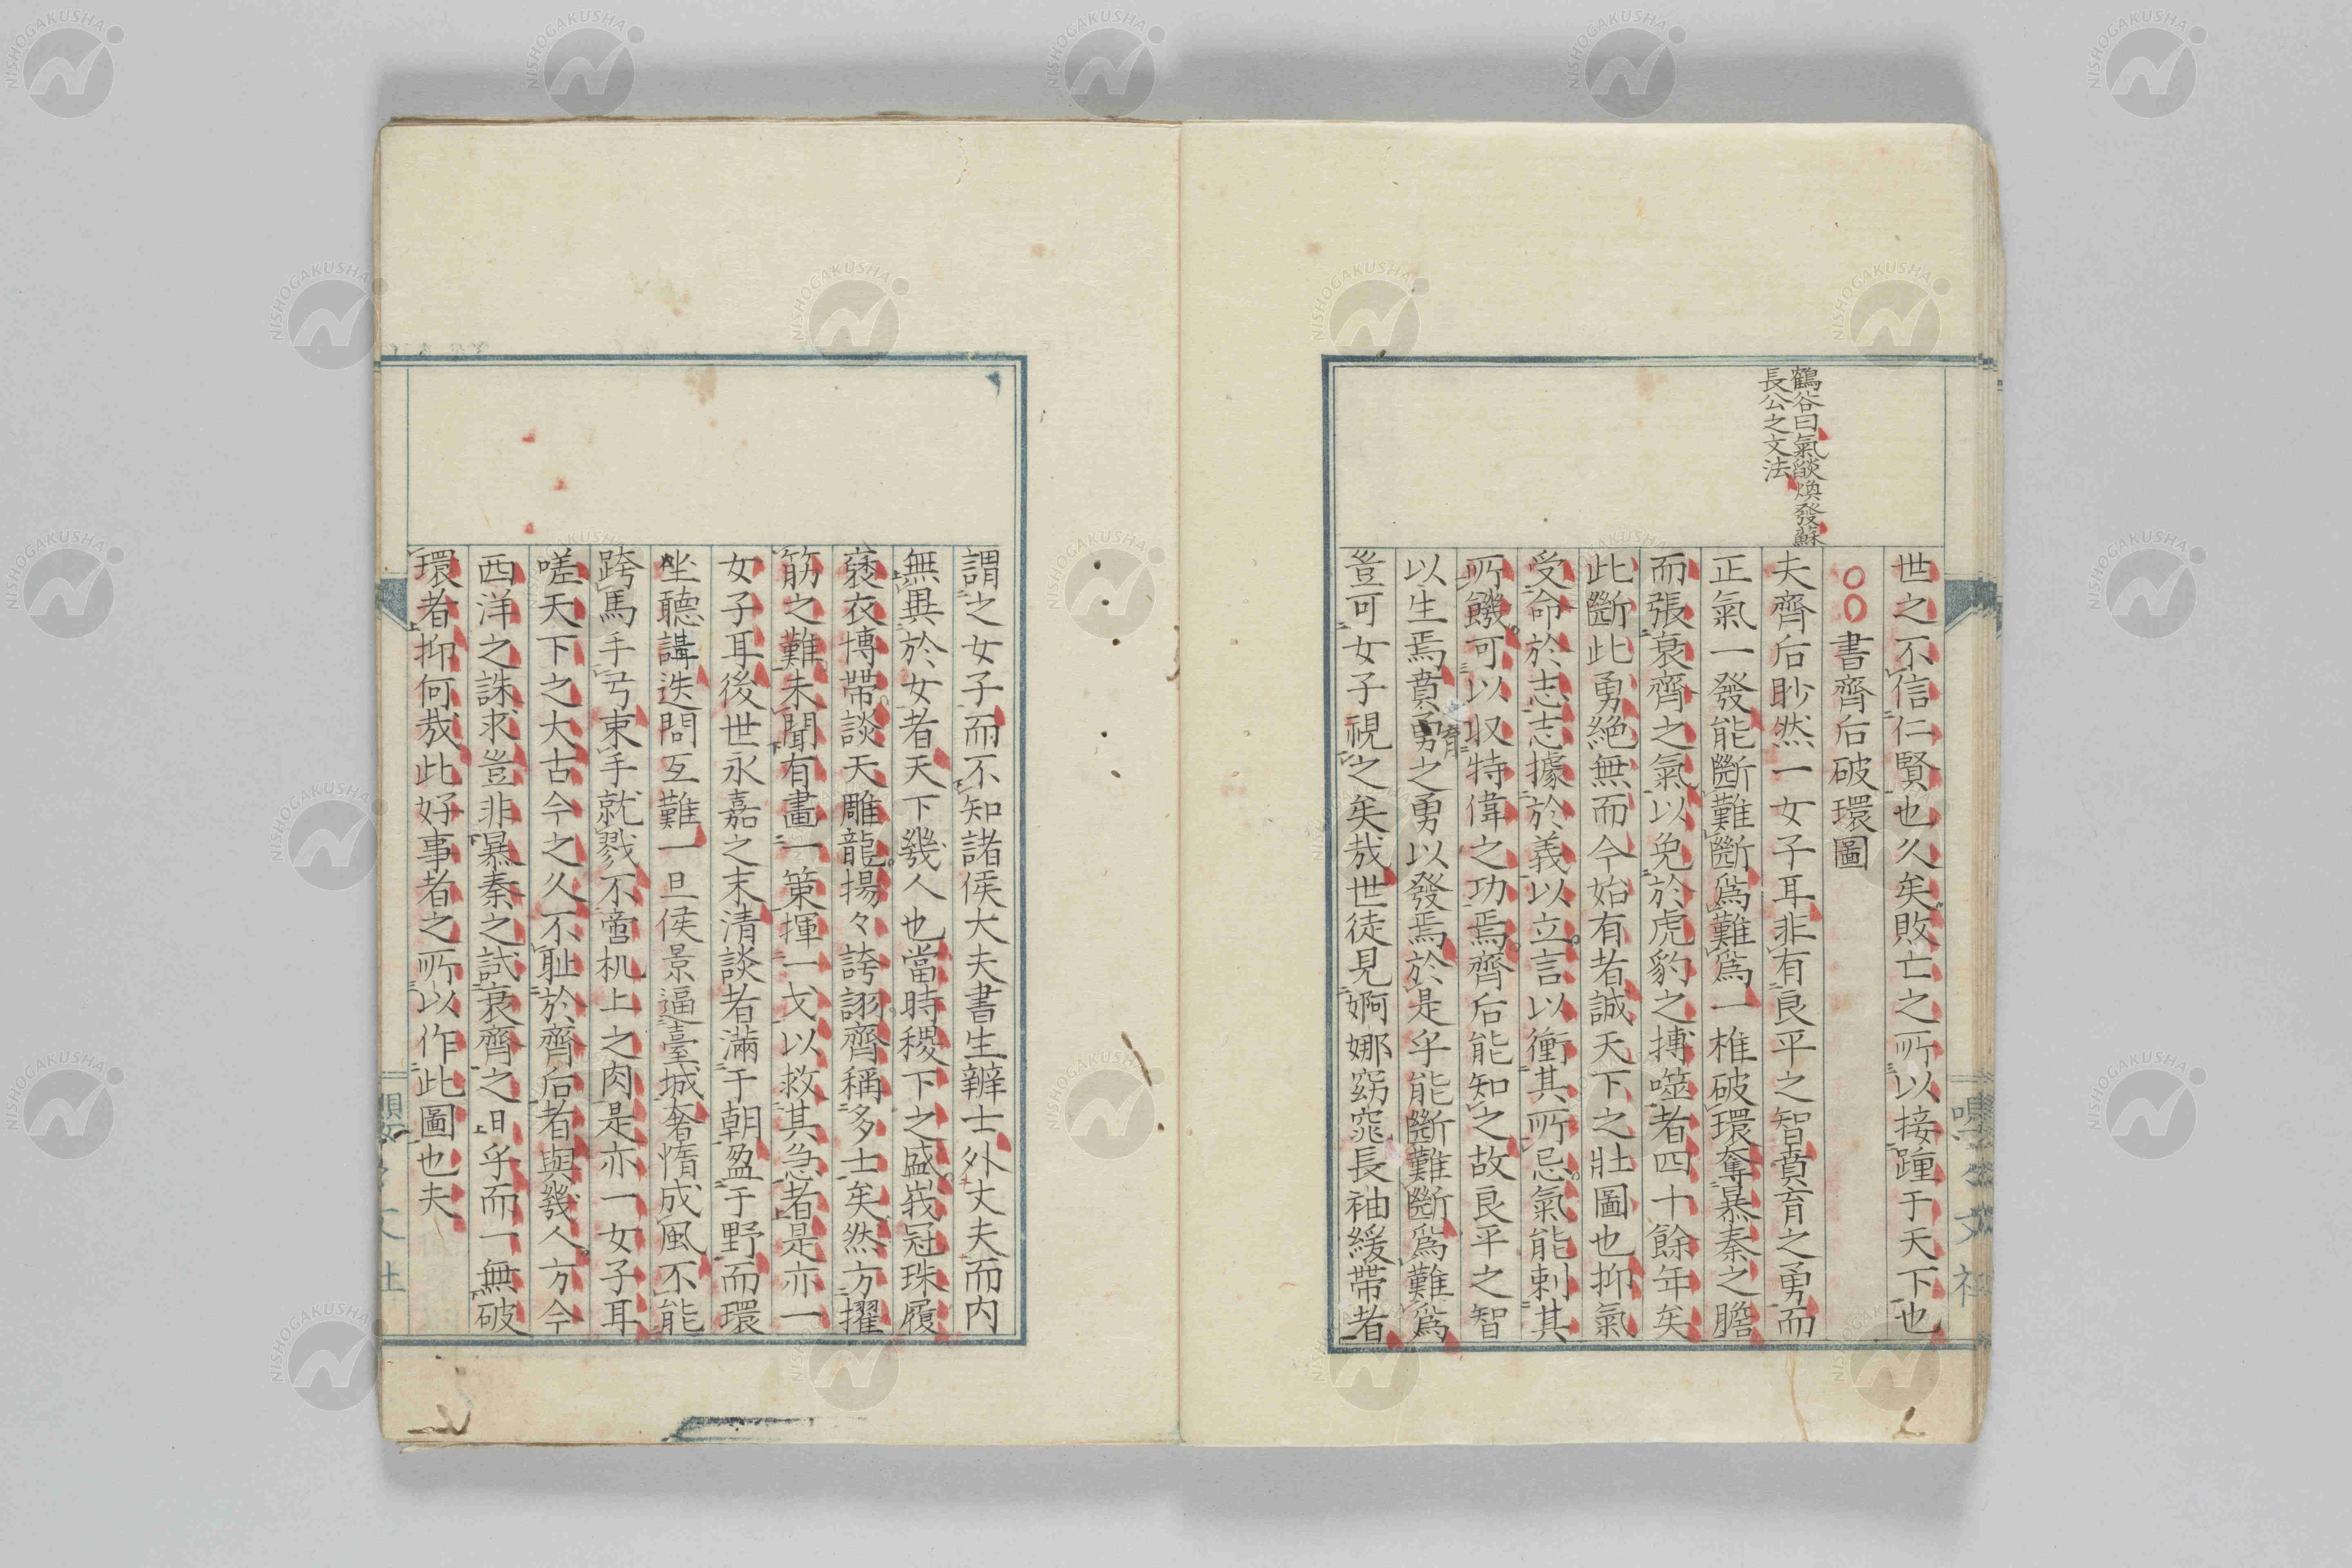 世之不信仁賢也久矣敗亡之所以接踵于天下也
鶴谷曰氣燄煥發蘇
長公之文法
○○書齊后破環圖
夫齊后眇然一女子耳非有良平之智賁育之勇而
正氣一發能斷難斷爲難爲一椎破環奪暴秦之膽
而張衰齊之氣以免於虎豹之搏噬者四十餘年矣
此斷此勇絶無而今始有者誠天下之壯圖也抑氣
受命於志志據於義以立言以衝其所忌氣能剌其
所饑可以収特偉之功焉齊后能知之故良平之智
以生焉賁育之勇以發焉於是乎能斷難斷爲難爲
豈可女子視之矣哉世徒見婀娜窈窕長袖緩帶者
謂之女子而不知諸侯大夫書生辯士外丈夫而内
無異於女者天下幾人也當時稷下之盛峩冠珠履
褒衣博帶談天雕龍揚々誇詡齊稱多士矣然方擢
筋之難未聞有畫一策揮一戈以救其急者是亦一
女子耳後世永嘉之末清談者滿于朝盈于野而環
坐聽講迭問互難一旦侯景逼臺城奢惰成風不能
跨馬手弓束手就戮不啻机上之肉是亦一女子耳
嗟天下之大古今之久不耻於齊后者與幾人方今
西洋之誅求豈非暴秦之試衰齊之日乎而一無破
環者抑何哉此好事者之所以作此圖也夫